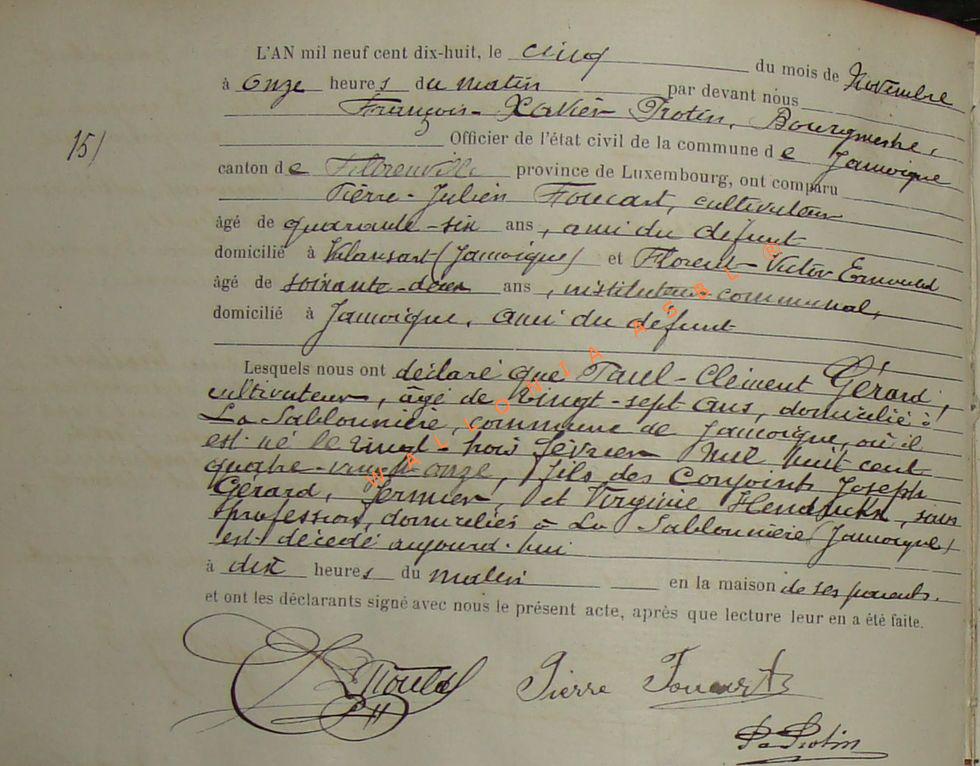 L'AN mil neuf cent dix-huit, le cinq du mois de Novembre
à onze heures du matin par devant nous
François-Xavier Protin, Bourgmestre,
15/
Officier de l'état civil de la commune de Jamoigne
canton de Florenville province de Luxembourg, ont comparu
Pierre-Julien Foucart, cultivateur
âgé de quarante-six ans, ami du défunt
domicilié à Valansart (Jamoigne) et Florent-Victor Ernould
âgé de soixante-deux ans, instituteur communal,
domicilié à Jamoigne, ami du défunt
Lesquels nous ont déclaré que Paul-Clément Gérard,
cultivateur, âgé de vingt-sept ans, domicilié à
La Sablonnière, commune de Jamoigne, où il
est né le vingt-trois février mil huit cent
quatre-vingt-onze, fils des conjoints Joseph
Gérard, fermier, et Virginie Hendrickx, sans
profession, domiciliés à La Sablonnière (Jamoigne)
est décédé aujourd'hui
à dix heures du matin en la maison de ses parents.
et ont les déclarants signé avec nous le présent acte, après que lecture leur en a été faite.
Pierre Foucart
Protin
WALLONIA ASBL ®